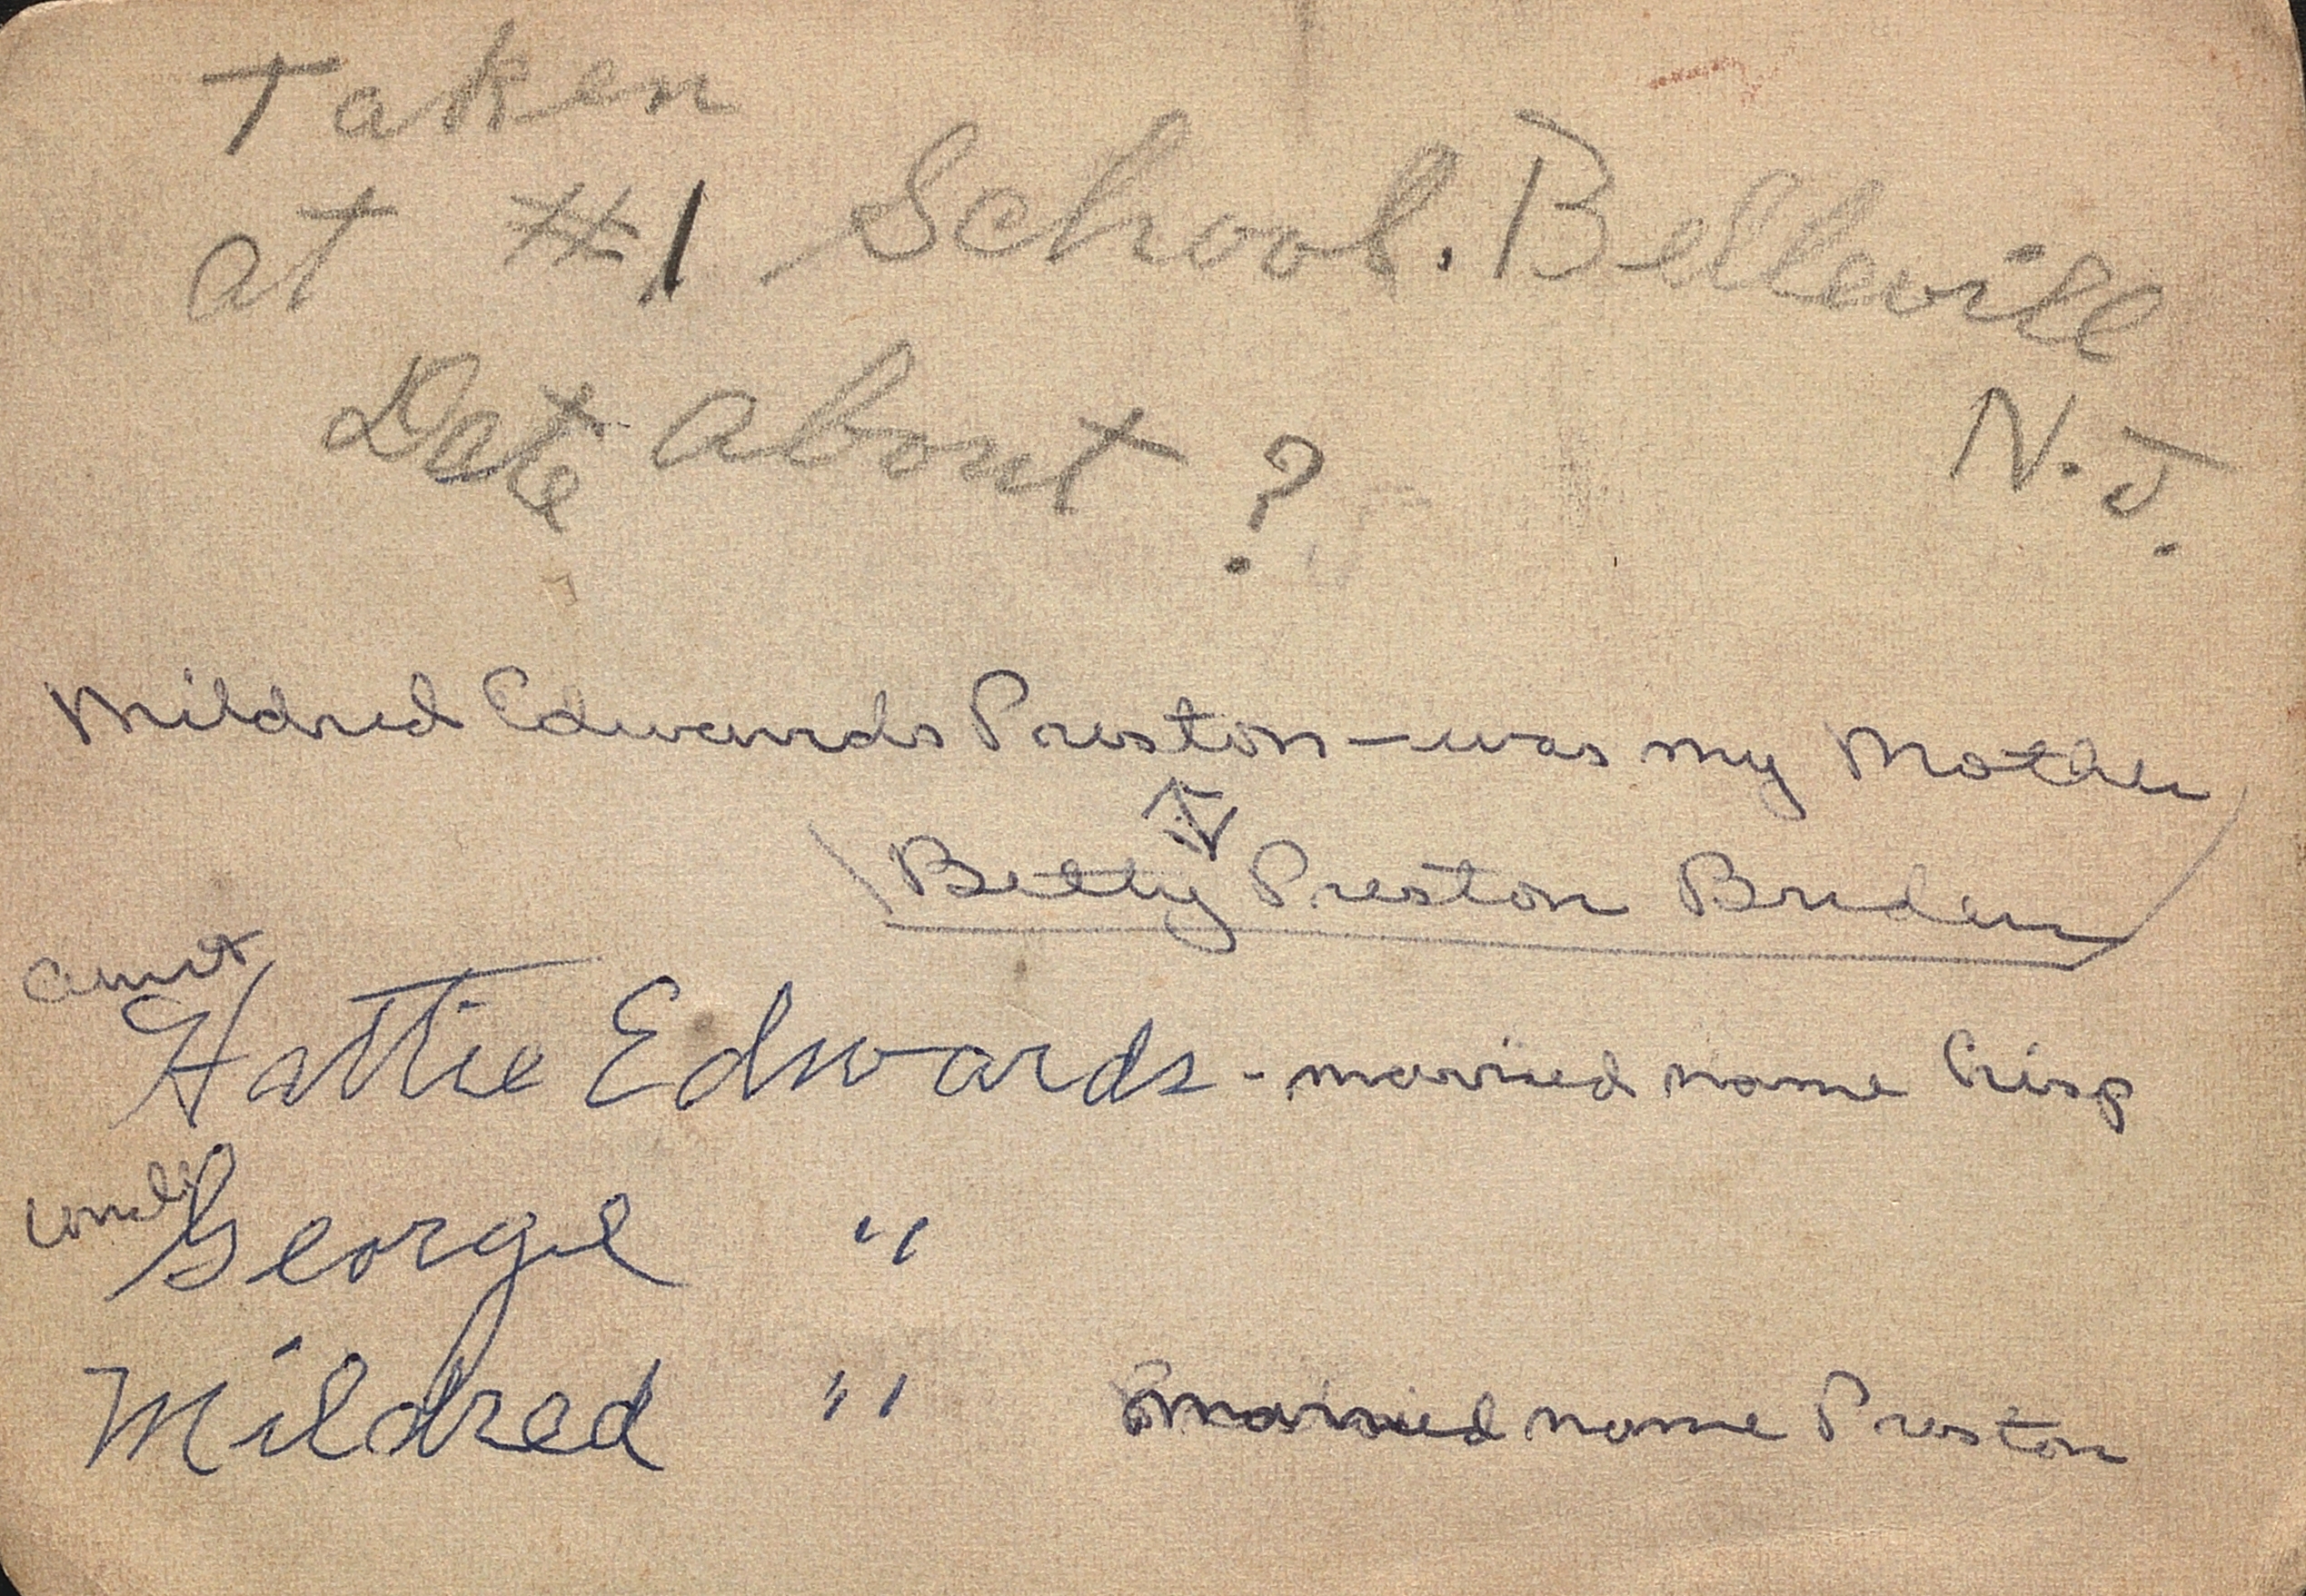 Taken
at #1 School. Belleville
N.J.
Date about ?
Mildred Edwards Preston – was my Mother
Betty Preston Bruden
aunt
Hattie Edwards - married name Crisp
uncle
George "
Mildred " married name Preston